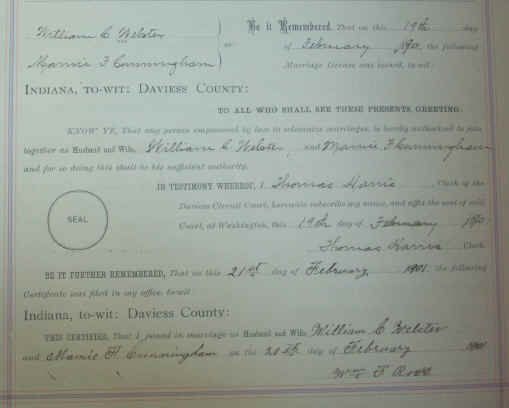 William C Webster
Mamie F Cunningham
Be it Remembered, That on this 19th day
of February 1901, the following
Marriage License was issued, to-wit:
INDIANA, TO-WIT: DAVIESS COUNTY:
TO ALL WHO SHALL SEE THESE PRESENTS, GREETING.
KNOW YE, That any person empowered by law to solemnize marriages, is hereby authorized to join
together as Husband and Wife, William C Webster, and Mamie F Cunningham
and for so doing this shall be his sufficient authority.
IN TESTIMONY WHEREOF, I Thomas Harris Clerk of the
Daviess Circuit Court, hereunto subscribe my name, and affix the seal of said
SEAL
Court, at Washington, this 19th day of February 190
Thomas Harris Clerk.
BE IT FURTHER REMEMBERED, That on this 21st day of February, 1901 the following
Certificate was filed in my office, to-wit:
Indiana, to-wit: Daviess County:
THIS CERTIFIES, That I joined in marriage as Husband and Wife William C Webster
and Mamie H. Cunningham on the 20th day of February 1901
Wm F